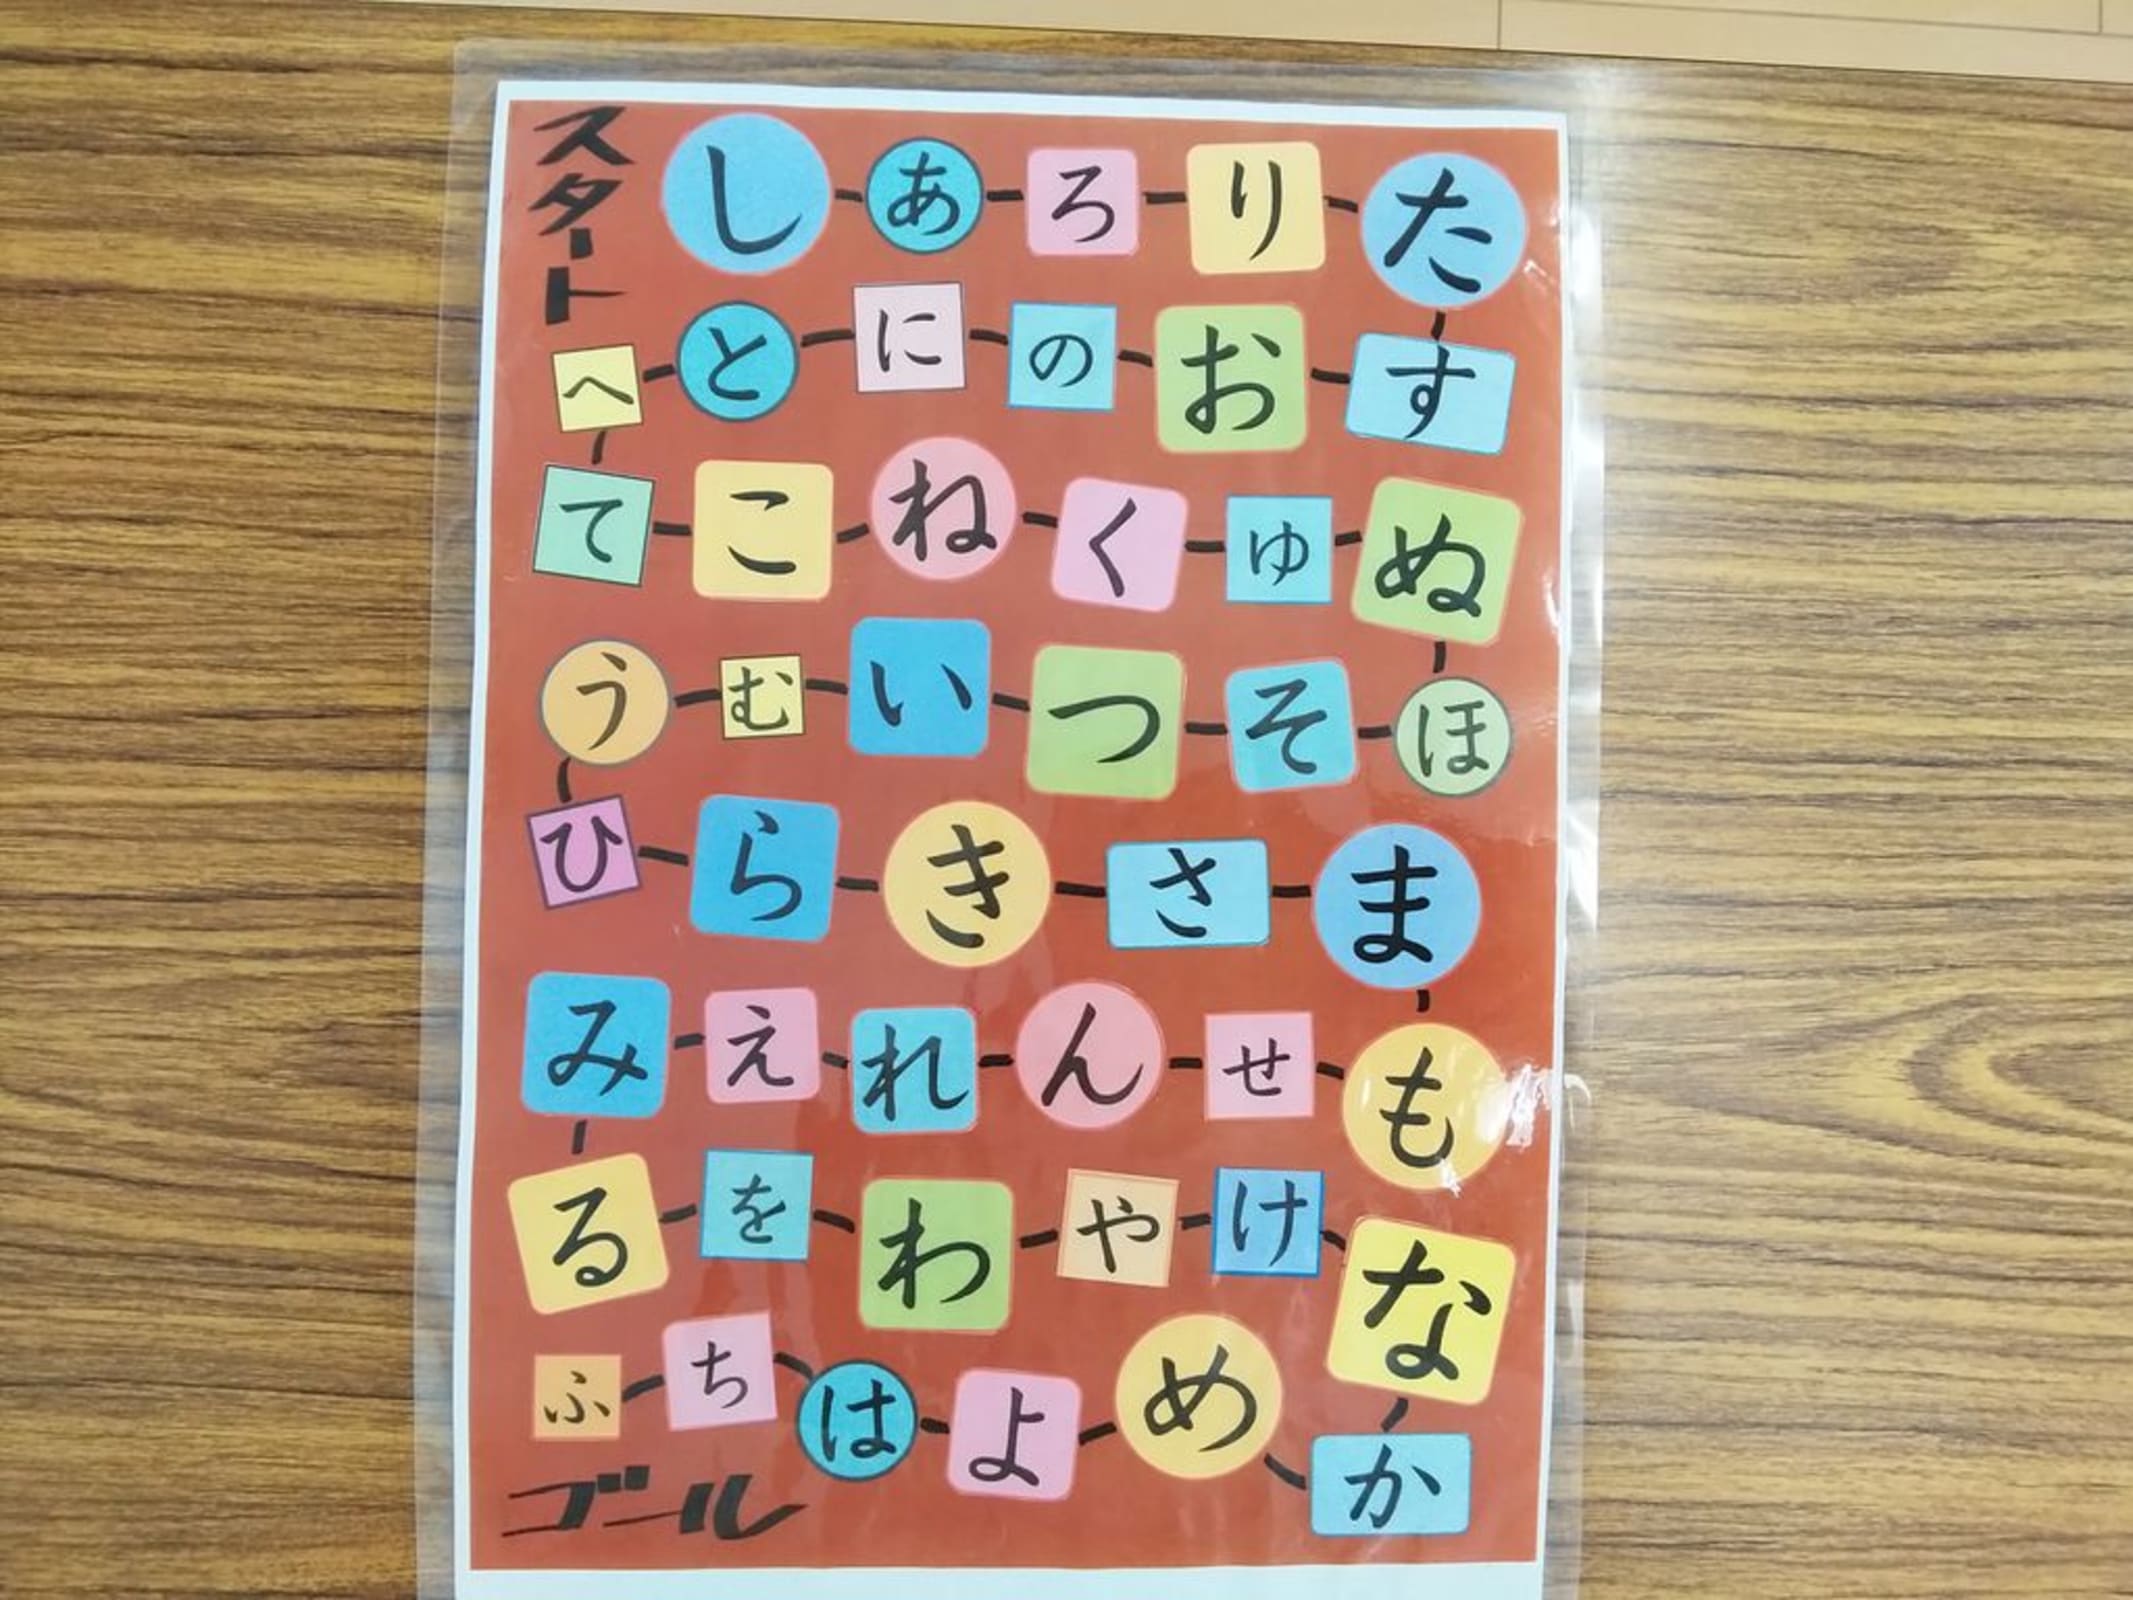 スタート
しあろりた
へとにのおす
てこねくゅぬ
うむいつそほ
ひらきさま
みえれんせも
るをわやけな
ふちはよめか
ゴール